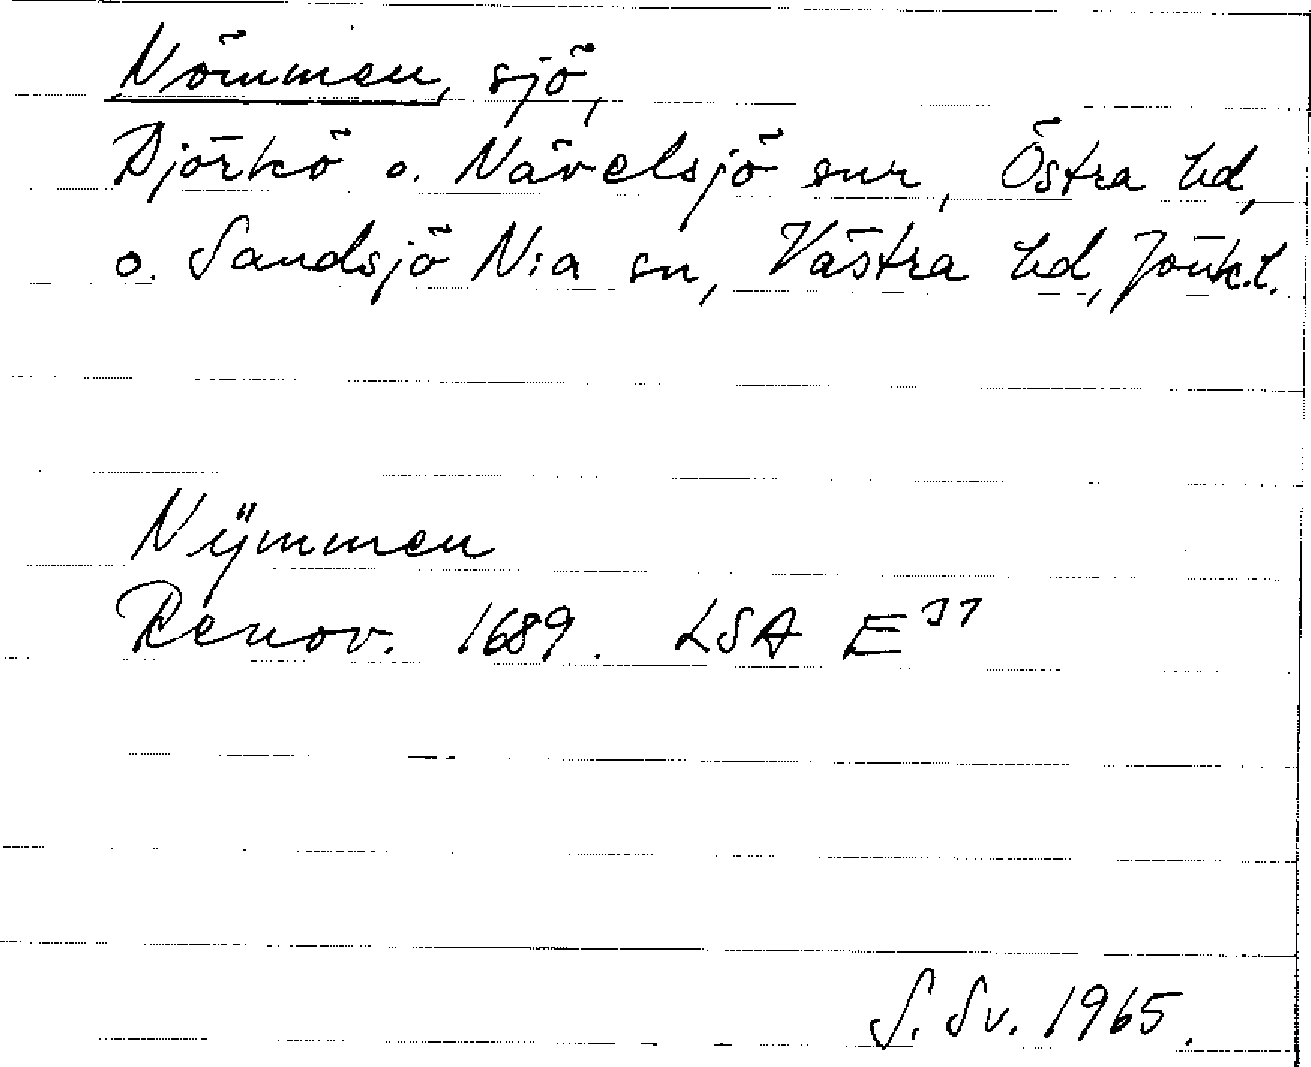 Nömmen, sjö,
Björkö o. Nävelsjö snr, Östra hd,
o. Sandsjö N:a sn, Västra hd, Jönk.l.
Nÿmmen
Renov. 1689. LSA E 37
S. Sv. 1965.